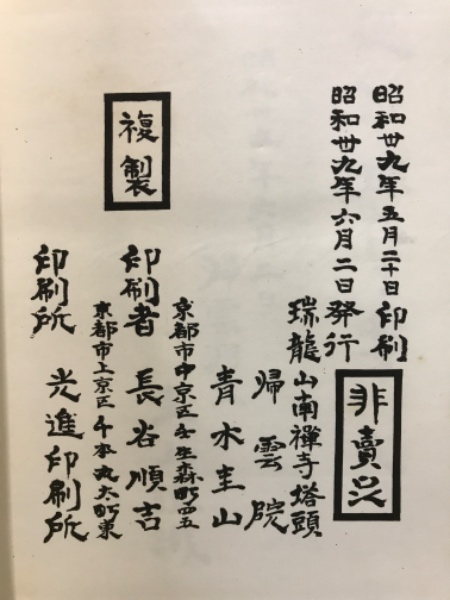 昭和卅九年五月二十日印刷
昭和卅九年六月二日発行
非賣品
瑞龍山南禅寺塔頭
帰雲院
青木圭山
複製
京都市中京区壬生森町四五
印刷者 長谷順吉
京都市上京区千本丸太町東
印刷所 光進印刷所